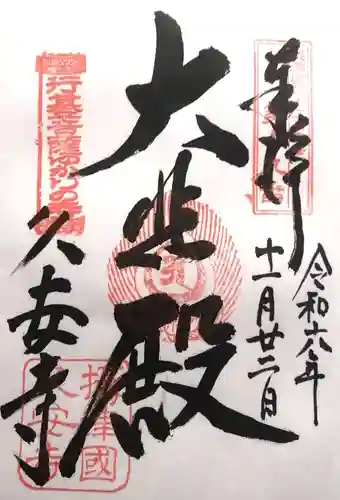 奉拝
令和六年
十一月廿二日
大悲殿
久安寺
行基菩薩ゆかりの
攝津國
久安寺